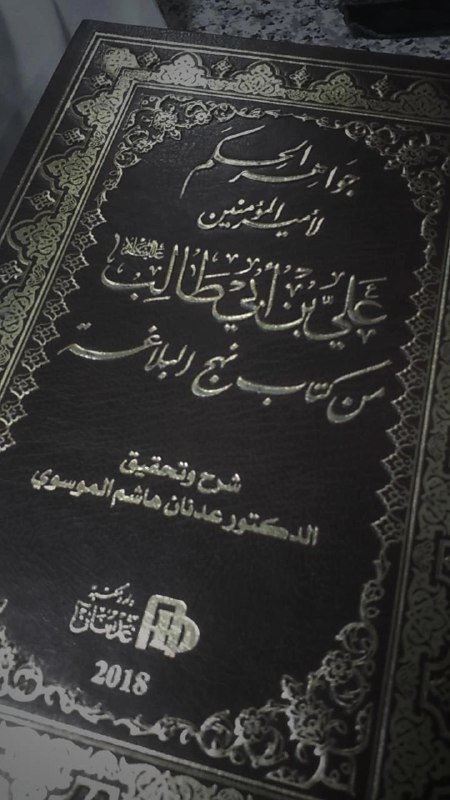 جَواهر الحِكَم
لأمير المؤمنين
عَليّ بن أَبي طَالِب عليه السلام
من كتاب نهج البلاغة
شرح وتحقيق
الدكتور عدنان هاشم الموسوي
دار ومكتبة
عدنان
2018